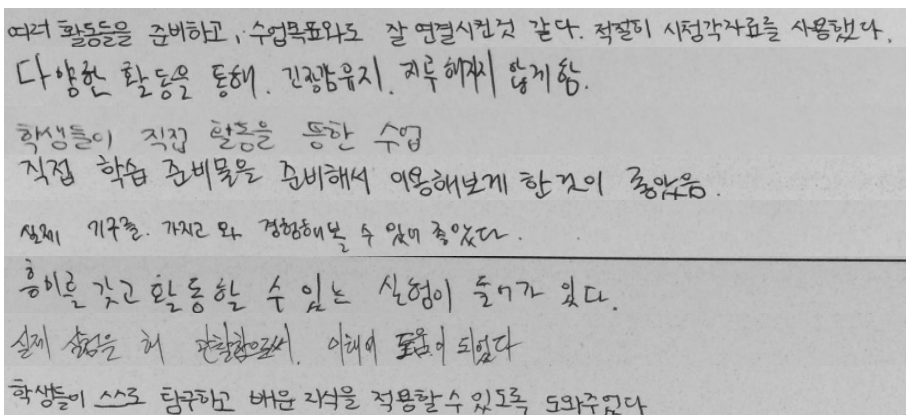 여러 활동들을 준비하고, 수업목표와도 잘 연결시킨것 같다. 적절히 시청각자료를 사용했다.
다양한 활동을 통해. 긴장감유지. 지루해지지 않게 함.
학생들이 직접 활동을 통한 수업
직접 학습 준비물을 준비해서 이용해보게 한것이 좋았음.
실제 기구를. 가지고 와 경험해볼 수 있어 좋았다.
흥미를 갖고 활동할 수 있는 실험이 들어가 있다.
실제 실험을 해 관찰함으로써. 이해에 도움이 되었다
학생들이 스스로 탐구하고 배운 지식을 적용할 수 있도록 도와주었다